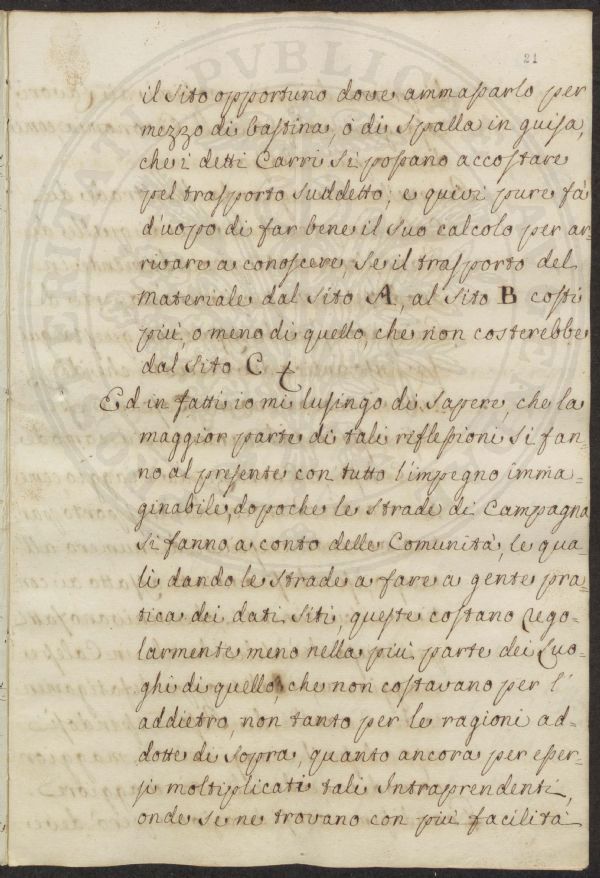 21
il sito opportuno dove ammassarlo per
mezzo di bastina, o di spalla in guisa,
che i detti Carri si possano accostare
pel trasporto suddetto; e quivi pure fà
d'uopo di far bene il suo calcolo per ar-
rivare a conoscere, se il trasporto del
materiale dal sito A, al sito B costi
più, o meno di quello, che non costerebbe
dal sito C
Ed in fatti io mi lusingo di sapere, che la
maggior parte di tali riflessioni si fan-
no al presente con tutto l'impegno imma-
ginabile, dopoche le strade di Campagna
si fanno a conto delle Comunità, le qua-
li dando le strade a fare a gente pra-
tica dei dati siti queste costano rego-
larmente meno nella più parte dei Luo-
ghi di quello, che non costavano per l'
addietro, non tanto per le ragioni ad-
dotte di sopra, quanto ancora per esser-
si moltiplicati tali Intraprendenti,
onde se ne trovano con più facilità